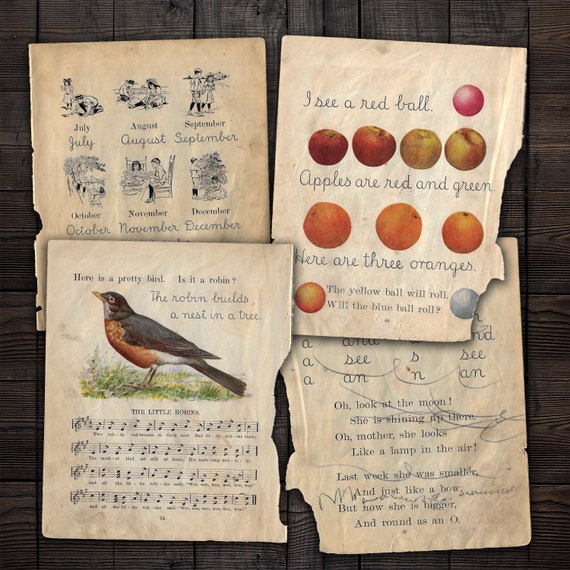 July August September
July August September
October November December
October November December
I see a red ball.
Apples are red and green.
Here are three oranges.
The yellow ball will roll.
Will the blue ball roll?
Here is a pretty bird. Is it a robin?
The robin builds
a nest in a tree.
THE LITTLE ROBINS.
and
a a and
a see s see
a an n an
Oh, look at the moon!
She is shining up there.
Oh, mother, she looks
Like a lamp in the air!
Last week she was smaller,
And just like a bow,
But now she is bigger,
And round as an O.